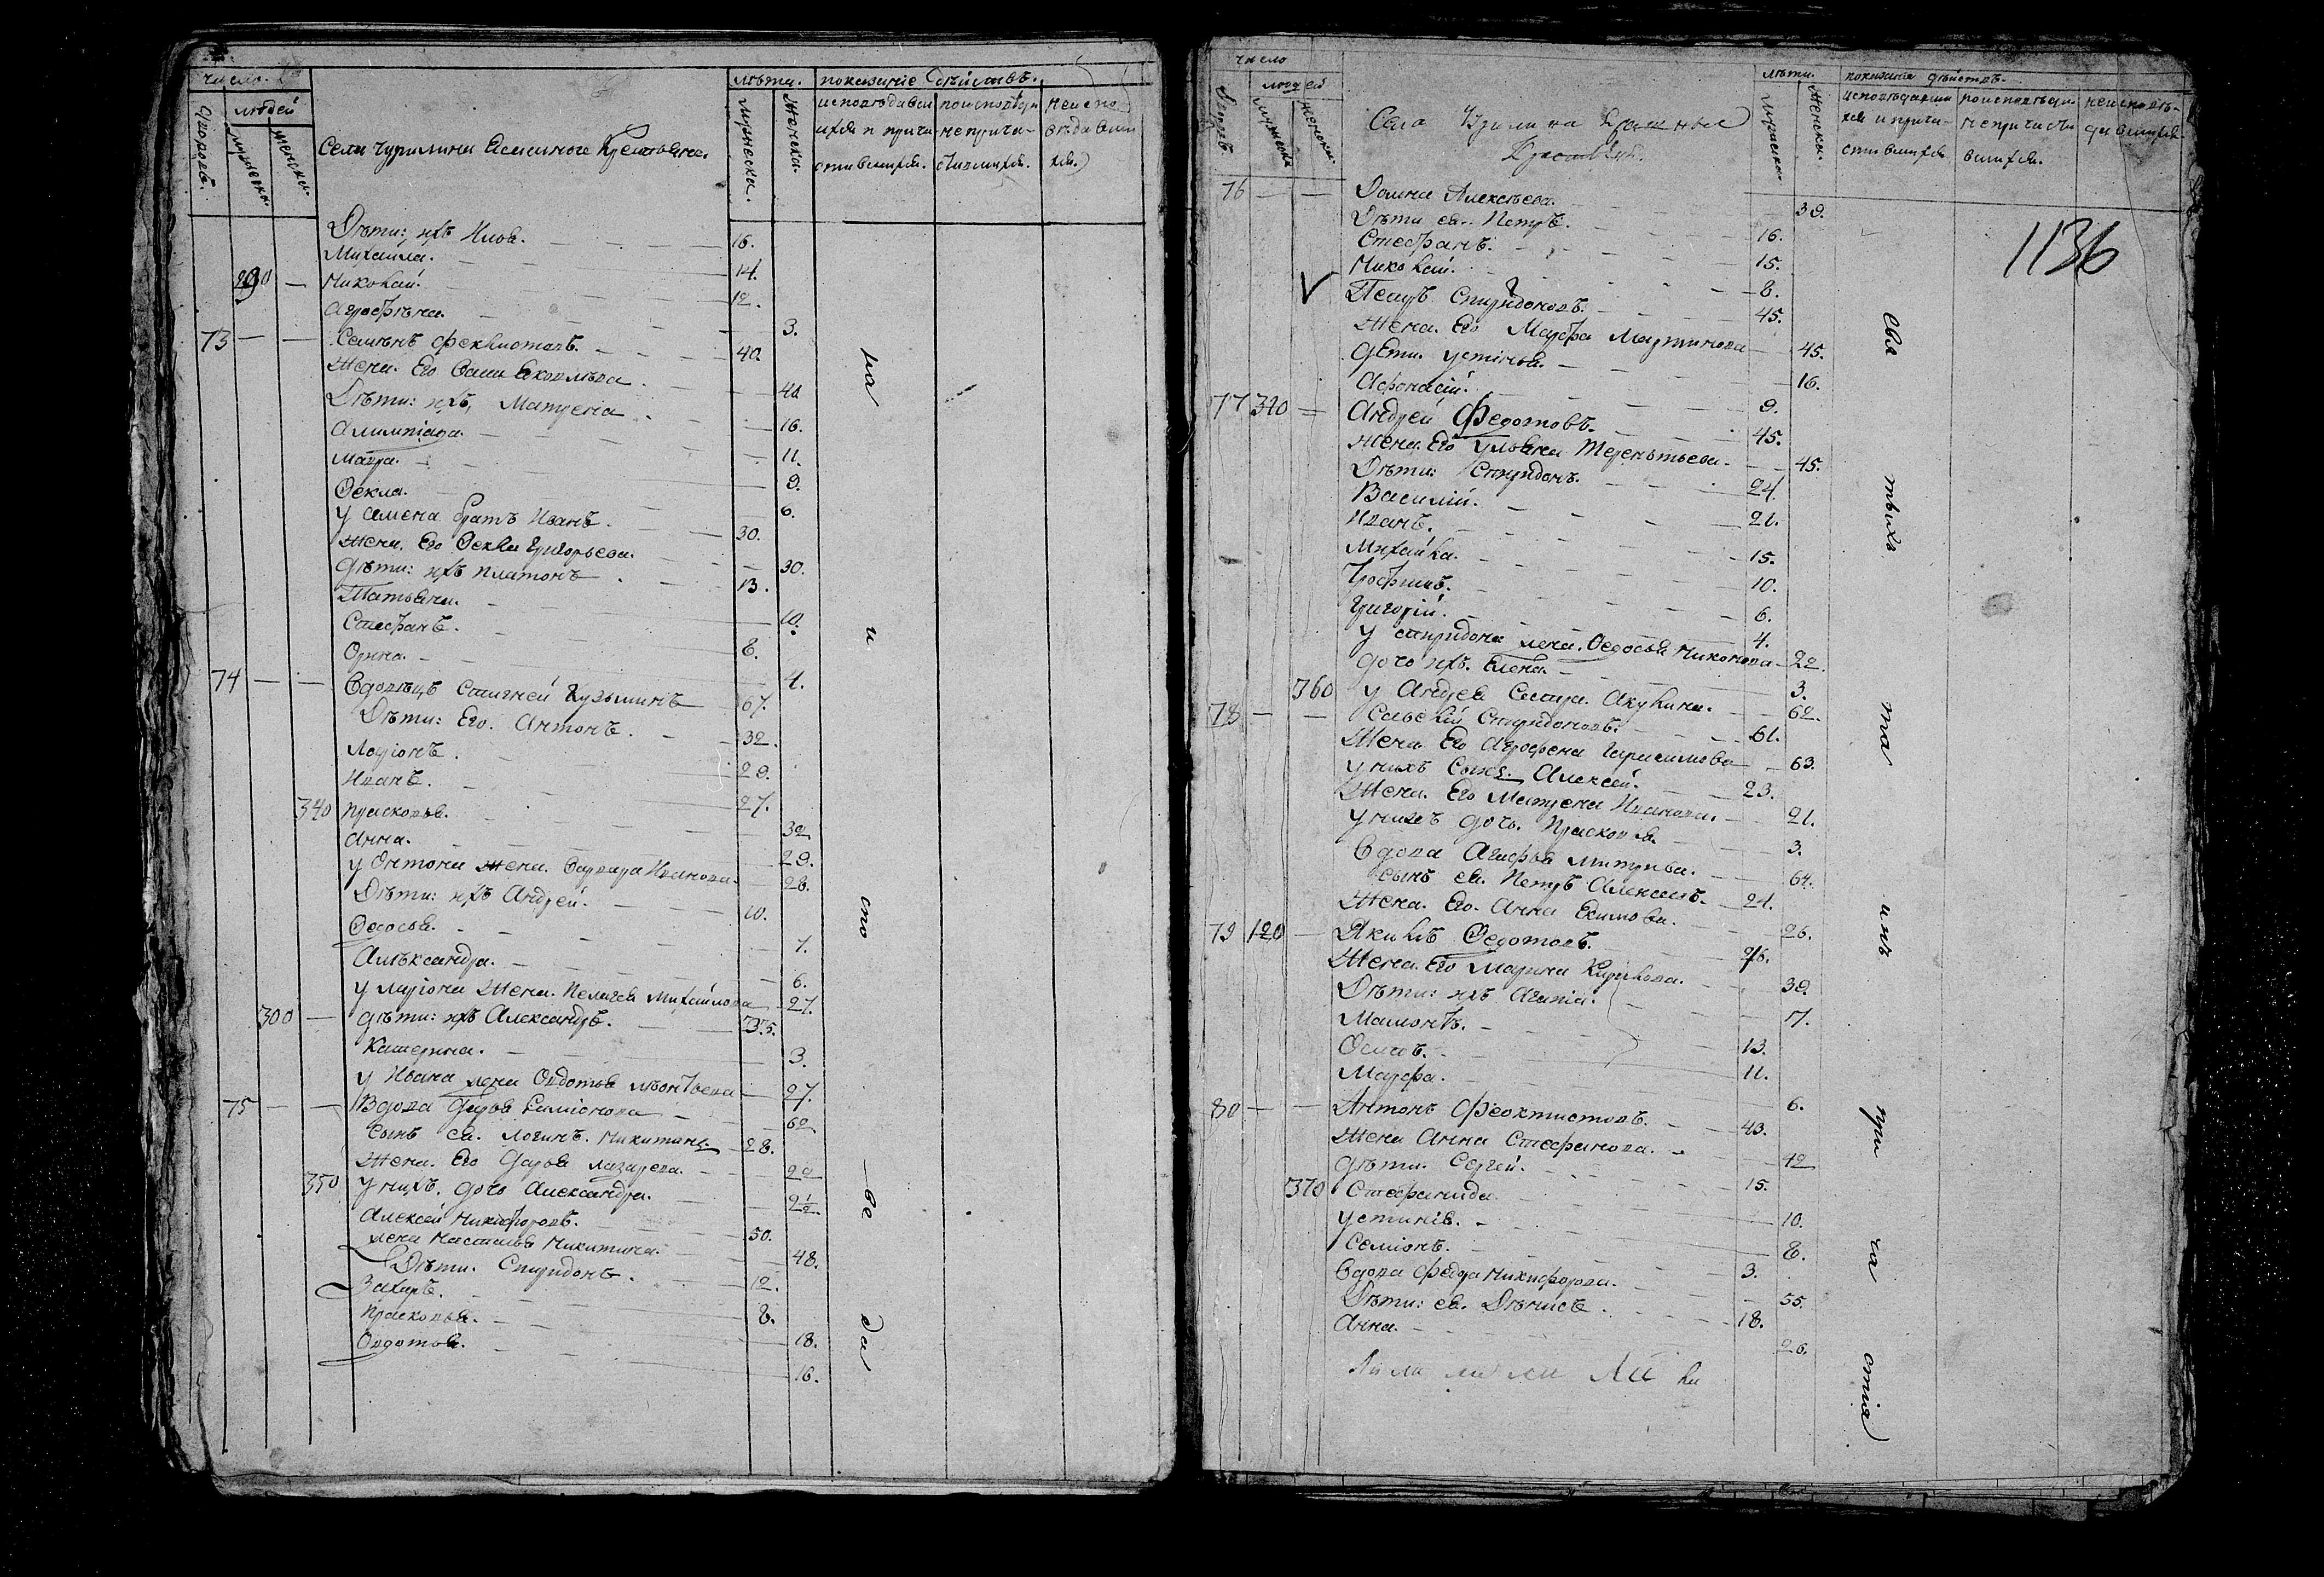 число
дворовъ.
людей
мужеска.
женска.
села Чурилина Ясашнога Крестьяне.
лѣта.
мужеска.
женска.
показаніе дѣйствъ.
исповѣдавши
ихся и прича
стившихся.
поисповѣди
непричи-
стившихся.
неиспо
вѣдавши
хся.
Дѣти: ихъ Илья. 16.
Михаила. 14.
290 Николай. 12.
Агрофѣна. 3.
73 Семѣнъ Феклистовъ. 40.
Жена. Его Яковлѣва 40
Дѣти: ихъ, Матрена 16.
Алимпіада. 11.
Мавра. 9.
Ѳекла. 6.
у Самена братъ Иванъ. 30.
Жена. Его Ѳекла Григорьева. 30.
дѣти: ихъ Платонъ 13.
Татьяна. 10.
Стефанъ. 8.
Орина. 4.
74 Вдовѣцъ Кузьминъ 67.
Дѣти: Его. Антонъ. 32.
Ларіонъ. 29.
Иванъ. 27.
340 Прасковья. 32
Анна. 29.
у Онтона жена. Варвара Иванова. 28.
Дѣти: ихъ Андрей. 10.
Ѳедосья. 7.
Алѣксандра. 6.
у Ларіона Жена. Пелагея Михайлова 27.
300 дѣти: ихъ Александръ. 5.
Катерина. 3.
у Ивана жена Овдотья 27.
75 Вдова Дарья Семіонова 62
Сынъ ея. Логинъ. Никитинъ 28.
Жена. Его Дарья Лазарева. 22
350 у нихъ. дочь Александра. 2½
Алексѣй Никифоровъ. 50.
жена Настасья Никитина. 48.
Дѣти. Спиридонъ. 12.
Захаръ. 8.
Прасковья. 18.
Овдотья. 16.
на
и
спо
ве
да
число
дворовъ.
людей
мужеска
женска.
Села Чурилина Ясашные
Крестьяне.
лѣта.
мужеска
женска.
показаніе дѣйствъ.
исповѣдавши
хся и прича-
стившихся
поисповѣди
непричасти
вшихся.
неисповѣ-
давшихся
1136
76 Домна Алексѣева. 39.
Дѣти ея. Петръ. 16.
Стефанъ. 15.
Николай. 8.
Петръ Спиридоновъ. 45.
Жена. Его Марфа Мартинова 45.
дѣти. Устинья. 16.
Афонасій. 9.
77 310 Андрей Федотовъ. 45.
жена. Его Ульяна Терентьева. 45.
Дѣти: Спиридонъ. 24.
Василій. 21.
Иванъ. 15.
Михайла. 10.
Трофимъ. 6.
Григорій. 4.
у Спиридона жена. Ѳедосья Никонова 22.
дочь ихъ. Елена. 3.
360 у Андрея Сестра. Акулина. 62.
78 Спиридоновъ. 61.
Жена. Его Агрофена Герасимова 63.
у нихъ Сынъ. Алексѣй. 23.
Жена. Его Матрена Иванова. 21.
у нихъ дочь. Прасковья. 3.
Вдова Агафья 64.
сынъ ея. Петръ Алексѣевъ. 24.
Жена. Его. Анна Екимова. 26.
79 120 Якимъ Ѳедотовъ. 46.
Жена. Его Марина Кирилова. 39.
Дѣти: ихъ Агапія. 17.
Мамонтъ. 13.
Осипъ. 11.
Марфа. 6.
80 Антонъ Феоктистовъ. 43.
Жена Анна Стефанова. 42
дѣти. Сергѣй. 15.
370 Стефанида. 10.
Устинія. 8.
Семіонъ. 3.
Вдова Никифорова. 55.
Дѣти: ея. Дѣнисъ 18.
Анна. 26.
свя
тыхъ
та
инъ
при
ча
стія